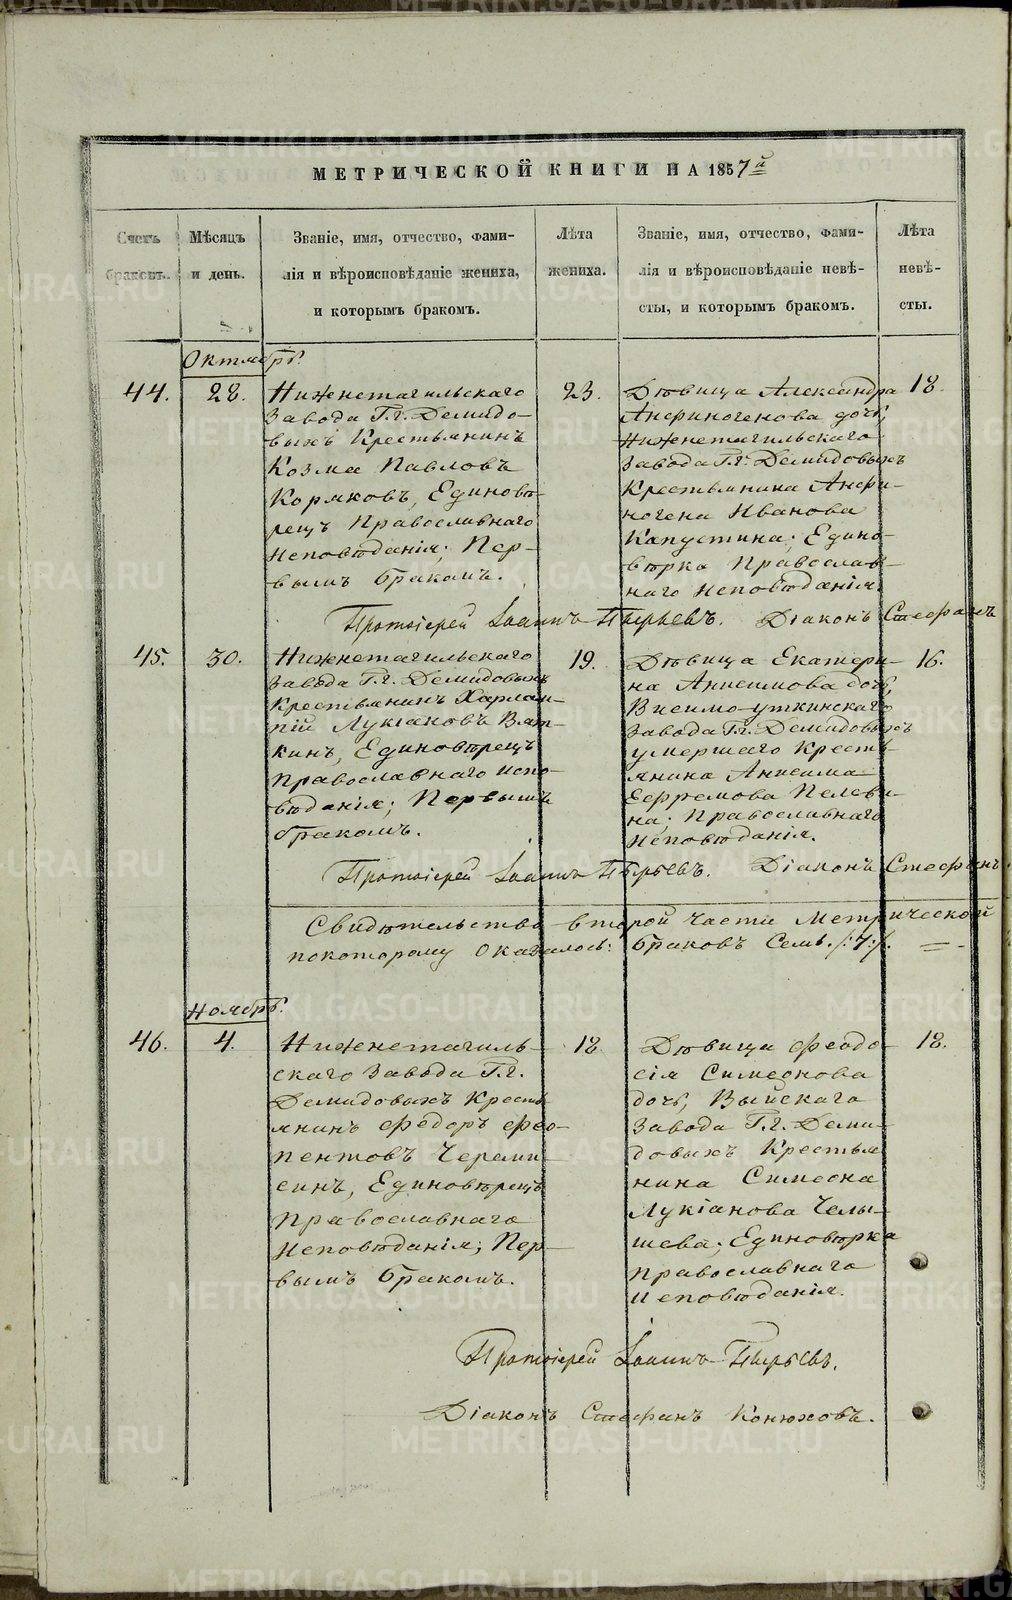 МЕТРИЧЕСКОЙ КНИГИ НА 1857й
Счетъ
браковъ.
Мѣсяцъ
и день.
Званіе, имя, отчество, фами-
лія и вѣроисповѣданіе жениха,
и которымъ бракомъ.
Лѣта
жениха.
Званіе, имя, отчество, фами-
лія и вѣроисповѣданіе невѣ-
сты, и которымъ бракомъ.
Лѣта
невѣ-
сты.
Октябрь.
44.
28.
Нижнетагильскаго
Завода Г.г. Демидо-
выхъ Крестьянинъ
Козма Павловъ
Коряковъ, Единовѣ-
рецъ Православнаго
Исповѣданія; Пер-
вымъ бракомъ.
23.
Дѣвица Александра
Анфиногенова дочь,
Нижнетагильскаго
Завода Г.г. Демидовыхъ
Крестьянина Анфи-
ногена Иванова
Капустина; Едино-
вѣрка Православ-
наго Исповѣданія.
18.
Протоіерей Іоаннъ Пырьевъ. Діаконъ Стефанъ
45.
30.
Нижнетагильскаго
Завода Г.г. Демидовыхъ
Крестьянинъ Харлам-
пій Лукіановъ Вят-
кинъ, Единовѣрецъ
Православнаго испо-
вѣданія; Первымъ
бракомъ.
19.
Дѣвица Екатери-
на Анисимова дочь,
Висимо-уткинскаго
Завода Г.г. Демидовыхъ
умершаго Кресть
янина Анисима
Ефремова Пелеви-
на; Православнаго
Исповѣданія.
16.
Протоіерей Іоаннъ Пырьевъ. Діаконъ Стефанъ
Свидѣтельство второй части Метрической
покоторому Оказалось: браковъ Семь./:7:/.
Ноябрь.
46.
4.
Нижнетагиль-
скаго Завода Г.г.
Демидовыхъ Кресть
янинъ Федоръ Фео-
пентовъ Череми-
синъ, Единовѣрецъ
Православнаго
Исповѣданія; Пер-
вымъ бракомъ.
18
Дѣвица Феодо-
сія Симеонова
дочь, Выйскаго
Завода Г.г. Деми-
довыхъ Крестья
нина Симеона
Лукіанова Челы-
шева; Единовѣрка
Православнаго
Исповѣданія.
18.
Протоіерей Іоаннъ Пырьевъ.
Діаконъ Стефанъ Конюховъ.
METRIKI.GASO-URAL.RU